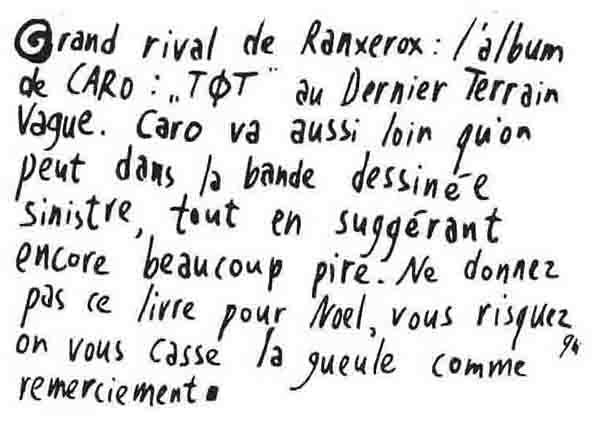 Grand rival de Ranxerox : l'album
de CARO : „TØT" au Dernier Terrain
Vague. Caro va aussi loin qu'on
peut dans la bande dessinée
sinistre, tout en suggérant
encore beaucoup pire. Ne donnez
pas ce livre pour Noel, vous risquez
qu'
on vous casse la gueule comme
remerciement.